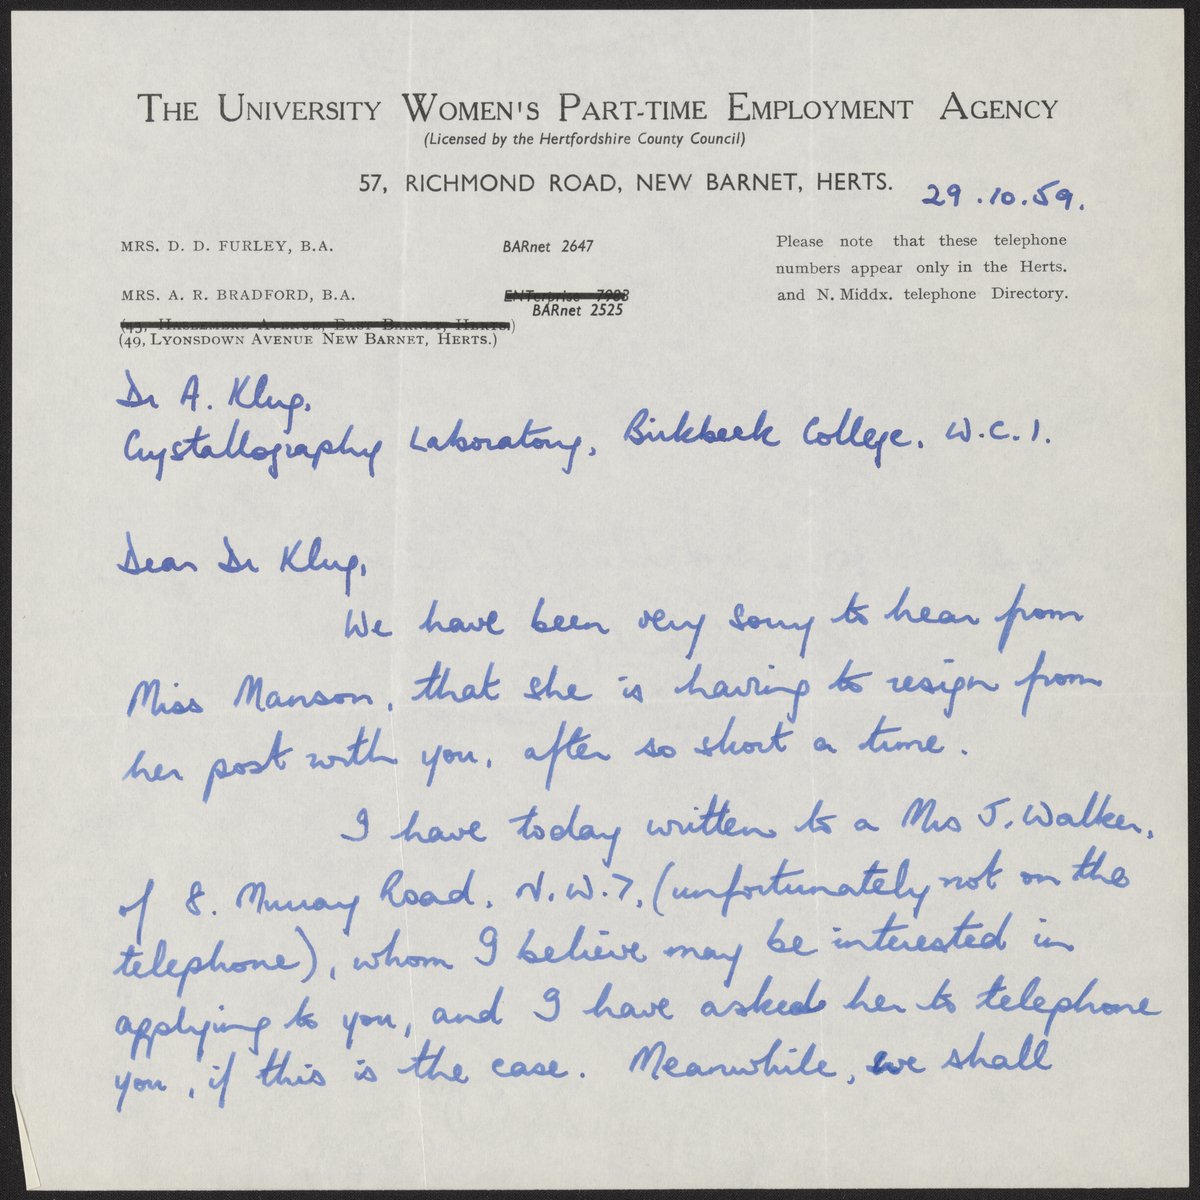 THE UNIVERSITY WOMEN'S PART-TIME EMPLOYMENT AGENCY
(Licensed by the Hertfordshire County Council)
57, RICHMOND ROAD, NEW BARNET, HERTS.
29.10.59.
MRS. D. D. FURLEY, B.A. BARnet 2647
Please note that these telephone
numbers appear only in the Herts.
and N. Middx. telephone Directory.
MRS. A. R. BRADFORD, B.A. ENTerprise 7983
BARnet 2525
(43, HASLEMERE AVENUE, EAST BARNET, HERTS.)
(49, LYONSDOWN AVENUE NEW BARNET, HERTS.)
Dr A. Klug,
Crystallography Laboratory, Birkbeck College, W.C.1.
Dear Dr Klug,
We have been very sorry to hear from
Miss Manson, that she is having to resign from
her post with you, after so short a time.
I have today written to a Mrs J. Walker,
of 8. Murray Road, N.W.7, (unfortunately not on the
telephone), whom I believe may be interested in
applying to you, and I have asked her to telephone
you, if this is the case. Meanwhile, we shall